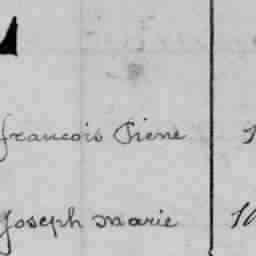 francois Pierre
Joseph Marie 10